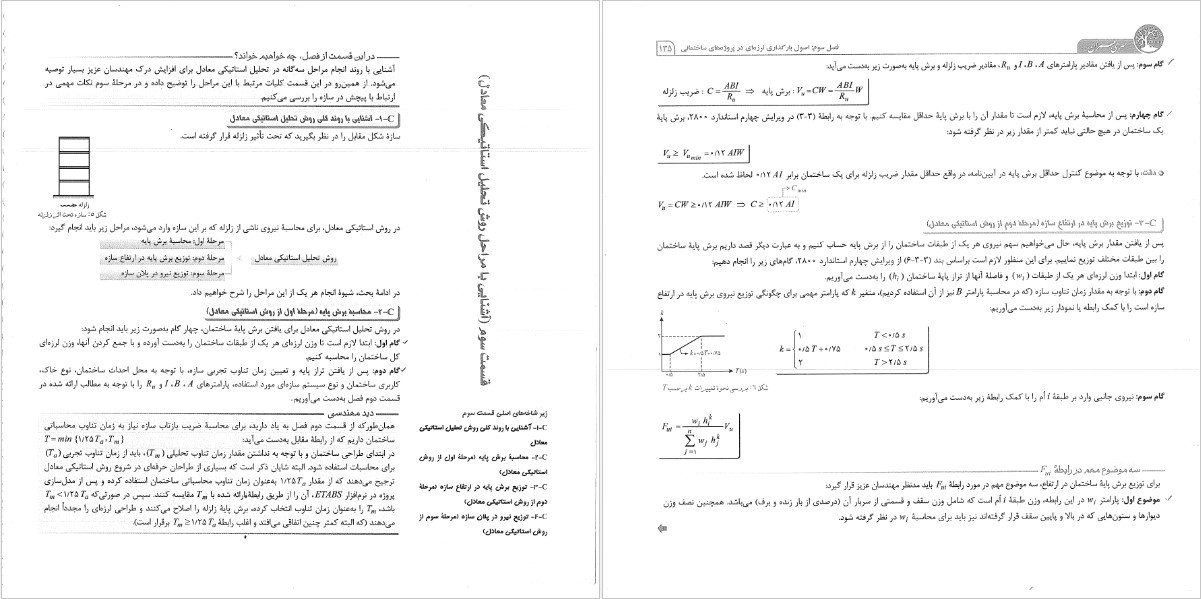 در این قسمت از فصل، چه خواهیم خواند؟
آشنایی با روند انجام مراحل سه‌گانه در تحلیل استاتیکی معادل برای افزایش درک مهندسان عزیز بسیار توصیه
می‌شود. از همین‌رو در این قسمت کلیات مرتبط با این مراحل را توضیح داده و در مرحلهٔ سوم نکات مهمی در
ارتباط با پیچش در سازه را بررسی می‌کنیم.
C-۱- آشنایی با روند کلی روش تحلیل استاتیکی معادل
سازهٔ شکل مقابل را در نظر بگیرید که تحت تأثیر زلزله قرار گرفته است.
زلزله
شکل ۵: سازه تحت اثر زلزله
در روش استاتیکی معادل، برای محاسبهٔ نیروی ناشی از زلزله که بر این سازه وارد می‌شود، مراحل زیر باید انجام گیرد:
روش تحلیل استاتیکی معادل
مرحلهٔ اول: محاسبهٔ برش پایه
مرحلهٔ دوم: توزیع برش پایه در ارتفاع سازه
مرحلهٔ سوم: توزیع نیرو در پلان سازه
در ادامهٔ بحث، شیوهٔ انجام هر یک از این مراحل را شرح خواهیم داد.
C-۲- محاسبهٔ برش پایه (مرحلهٔ اول از روش استاتیکی معادل)
در روش تحلیل استاتیکی معادل برای یافتن برش پایهٔ ساختمان، چهار گام به‌صورت زیر باید انجام شود:
✓ گام اول: ابتدا لازم است تا وزن لرزه‌ای هر یک از طبقات ساختمان را به‌دست آورده و با جمع کردن آنها، وزن لرزه‌ای
کل ساختمان را محاسبه کنیم.
✓ گام دوم: پس از یافتن تراز پایه و تعیین زمان تناوب تجربی سازه، با توجه به محل احداث ساختمان، نوع خاک،
کاربری ساختمان و نوع سیستم سازه‌ای مورد استفاده، پارامترهای A ، B ، I و Ru را با توجه به مطالب ارائه شده در
قسمت دوم فصل به‌دست می‌آوریم.
دید مهندسی
همان‌طورکه از قسمت دوم فصل به یاد دارید، برای محاسبهٔ ضریب بازتاب سازه نیاز به زمان تناوب محاسباتی
ساختمان داریم که از رابطهٔ مقابل به‌دست می‌آید: T = min {۱/۲۵Ta , Tm}
در ابتدای طراحی ساختمان و با توجه به نداشتن مقدار زمان تناوب تحلیلی (Tm)، باید از زمان تناوب تجربی (Ta)
برای محاسبات استفاده شود. البته شایان ذکر است که بسیاری از طراحان حرفه‌ای در شروع روش استاتیکی معادل
ترجیح می‌دهند که از مقدار ۱/۲۵Ta به‌عنوان زمان تناوب محاسباتی ساختمان استفاده کرده و پس از مدل‌سازی
پروژه در نرم‌افزار ETABS، آن را از طریق رابطهٔ ارائه شده با Tm مقایسه کنند. سپس در صورتی‌که Tm < ۱/۲۵ Ta
باشد، Tm را به‌عنوان زمان تناوب انتخاب کرده، برش پایهٔ زلزله را اصلاح می‌کنند و طراحی لرزه‌ای را مجدداً انجام
می‌دهند (که البته کمتر چنین اتفاقی می‌افتد و اغلب رابطهٔ Tm ≥ ۱/۲۵ Ta برقرار است).
قسمت سوم (آشنایی با مراحل روش تحلیل استاتیکی معادل)
زیر شاخه‌های اصلی قسمت سوم
C-۱- آشنایی با روند کلی روش تحلیل استاتیکی
معادل
C-۲- محاسبهٔ برش پایه (مرحلهٔ اول از روش
استاتیکی معادل)
C-۳- توزیع برش پایه در ارتفاع سازه (مرحلهٔ
دوم از روش استاتیکی معادل)
C-۴- توزیع نیرو در پلان سازه (مرحلهٔ سوم از
روش استاتیکی معادل)
فصل سوم: اصول بارگذاری لرزه‌ای در پروژه‌های ساختمانی ۱۳۵
✓ گام سوم: پس از یافتن مقادیر پارامترهای A ، B ، I و Ru، مقادیر ضریب زلزله و برش پایه به‌صورت زیر به‌دست می‌آید:
ضریب زلزله : C = ABI/Ru ⇒ برش پایه : Vu = CW = ABI/Ru W
✓ گام چهارم: پس از محاسبهٔ برش پایه، لازم است تا مقدار آن را با برش پایهٔ حداقل مقایسه کنیم. با توجه به رابطهٔ (۳-۳) در ویرایش چهارم استاندارد ۲۸۰۰، برش پایهٔ
یک ساختمان در هیچ حالتی نباید کمتر از مقدار زیر در نظر گرفته شود:
Vu ≥ Vu min = ۰/۱۲ AIW
دقت: با توجه به موضوع کنترل حداقل برش پایه در آیین‌نامه، در واقع حداقل مقدار ضریب زلزله برای یک ساختمان برابر ۰/۱۲ AI لحاظ شده است.
C min
Vu = CW ≥ ۰/۱۲ AIW ⇒ C ≥ ۰/۱۲ AI
C-۳- توزیع برش پایه در ارتفاع سازه (مرحلهٔ دوم از روش استاتیکی معادل)
پس از یافتن مقدار برش پایه، حال می‌خواهیم سهم نیروی هر یک از طبقات ساختمان را از برش پایه حساب کنیم و به عبارت دیگر قصد داریم برش پایهٔ ساختمان
را بین طبقات مختلف توزیع نماییم. برای این منظور لازم است براساس بند (۳-۳-۶) از ویرایش چهارم استاندارد ۲۸۰۰، گام‌های زیر را انجام دهیم:
گام اول: ابتدا وزن لرزه‌ای هر یک از طبقات (wi) و فاصلهٔ آنها از تراز پایهٔ ساختمان (hi) را به‌دست می‌آوریم.
گام دوم: با توجه به مقدار زمان تناوب سازه (که در محاسبهٔ پارامتر B نیز از آن استفاده کردیم)، متغیر k که پارامتر مهمی برای چگونگی توزیع نیروی برش پایه در ارتفاع
سازه است را با کمک رابطه یا نمودار زیر به‌دست می‌آوریم:
k = { ۱ T < ۰/۵ s
۰/۵ T + ۰/۷۵ ۰/۵ s ≤ T ≤ ۲/۵ s
۲ T > ۲/۵ s
k
۲
۱
k = ۰/۵T + ۰/۷۵
۰/۵ ۲/۵ T (s)
شکل ۶: بررسی نحوهٔ تغییرات k بر حسب T
گام سوم: نیروی جانبی وارد بر طبقهٔ i اُم را با کمک رابطهٔ زیر به‌دست می‌آوریم:
Fui = wi hi^k / Σ(j=۱ تا n) wj hj^k Vu
سه موضوع مهم در رابطهٔ Fui
برای توزیع برش پایهٔ ساختمان در ارتفاع، سه موضوع مهم در مورد رابطهٔ Fui باید مدنظر مهندسان عزیز قرار گیرد:
✓ موضوع اول: پارامتر wi در این رابطه، وزن طبقهٔ i اُم است که شامل وزن سقف و قسمتی از سربار آن (درصدی از بار زنده و برف) می‌باشد. همچنین نصف وزن
دیوارها و ستون‌هایی که در بالا و پایین سقف قرار گرفته‌اند نیز باید برای محاسبهٔ wi در نظر گرفته شود.